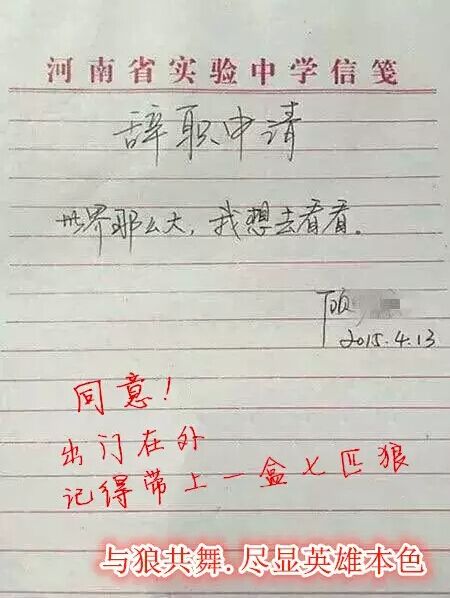 河南省实验中学信笺
辞职申请
世界那么大，我想去看看。
顾
2015.4.13
同意！
出门在外
记得带上一盒七匹狼
与狼共舞.尽显英雄本色